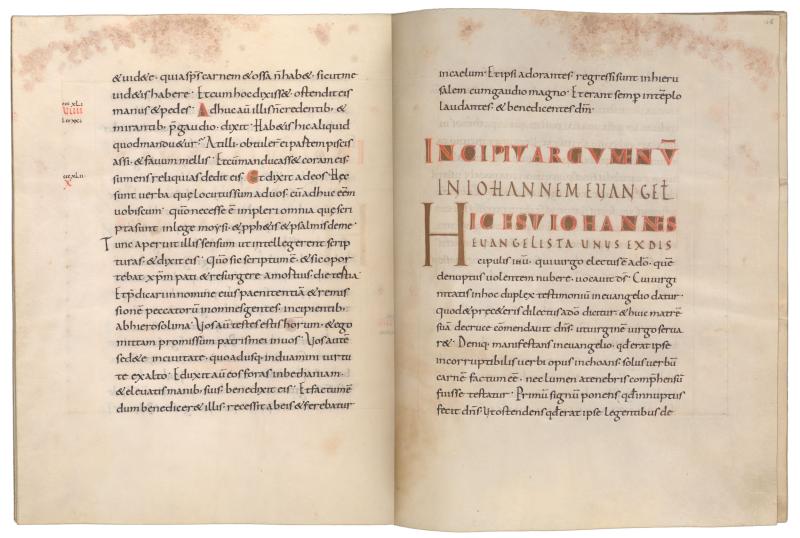 & uid&e · quia sp̄s carnem & ossa n̄ hab& · sicut me
uid&is habere · Et cum hoc dixiss& · ostendit eis
manus & pedes · Adhuc aū illis n̄ credentib; &
mirantib; p̄ gaudio · dixit · Hab&is hic aliquid
quod manduc&ur · At illi obtuler̄ ei partem piscis
assi · & fauum mellis · Et cū manducass& coram eis ·
sumens reliquias dedit eis · Et dixit ad eos · Hęc
sunt uerba quę locutus sum ad uos · cū adhuc eēm
uobiscum · quō necesse ē impleri omnia quę scri
pta sunt in lege moysi · & pph&is & psalmis de me ·
Tunc aperuit illis sensum ut intellegerent scrip
turas · & dixit eis · Quō sic scriptum ē · & sic opor
tebat xp̄m pati & resurgere a mortuis die tertia
Et p̄dicari in nomine eius paenitentiā & remis
sionē peccatorū in omnes gentes · incipientib;
ab hierosolima · Vos aū testes estis horum · & ego
mittam promissum patris mei in uos · Vos autē
sed&e in ciuitate · quo adusq; induamini uirtu
te ex alto · Eduxit aū eos foras in bethaniam ·
& eleuatis manib; suis · benedixit eis · Et factum ē
dum benedicer& illis · recessit ab eis & ferebatur
in caelum · Et ipsi adorantes regressi sunt in hieru
salem cum gaudio magno · Et erant semp̄ in tēplo
laudantes · & benedicentes dm̄ ·
INCIPIT ARGVMENTV̄
IN IOHANNEM EUANGEL
HIC EST IOHANNES
EUANGELISTA UNUS EX DIS
cipulis ihū · qui uirgo electus ē a dō · quē
de nuptiis uolentem nubere · uocauit ds̄ · Cui uirgi
nitatis in hoc duplex testimoniū in euangelio datur ·
quod & prę c&eris dilectus a dō dicitur · & huic matrē
suā de cruce cōmendauit dn̄s · ut uirginē uirgo serua
r& · Deniq; manifestans in euangelio · qd̄ erat ipse
incorruptibilis uerbi opus inchoans · solus uerbū
carnē factum eē · nec lumen a tenebris comp̄hensū
fuisse testatur · Primū signū ponens qd̄ in nuptiis
fecit dn̄s · Vt ostendens qd̄ erat ipse · legentibus de